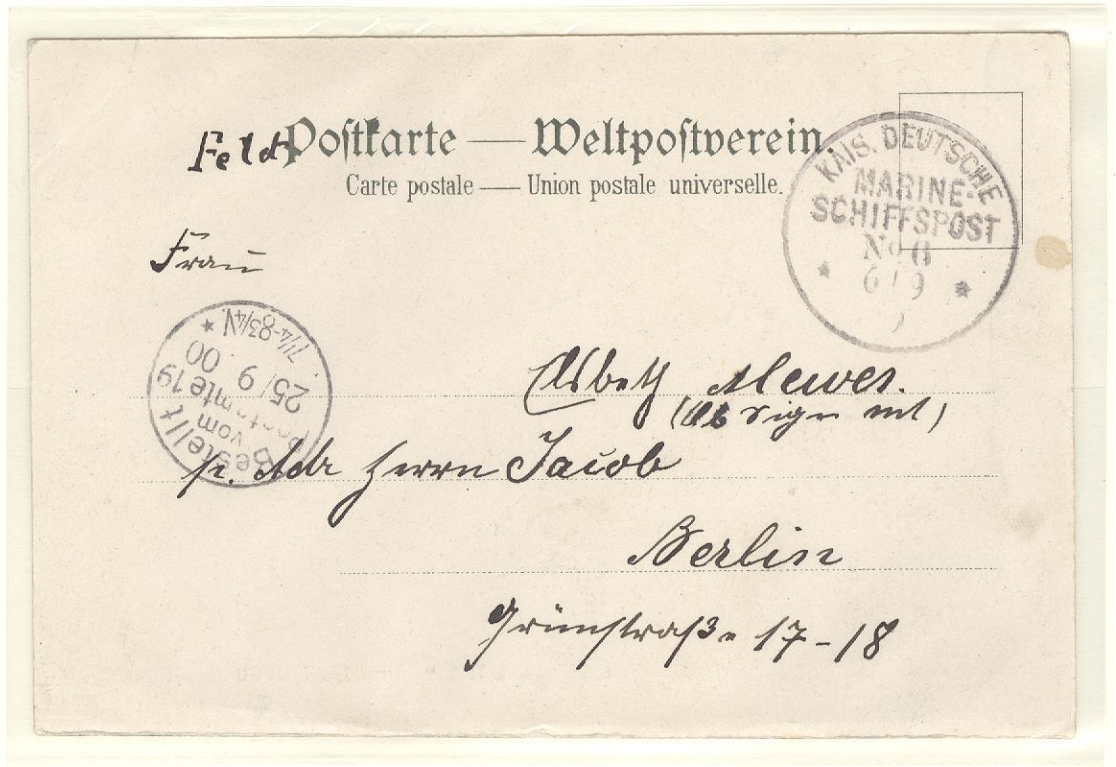 Feld Postkarte — Weltpostverein.
Carte postale — Union postale universelle.
KAIS. DEUTSCHE
MARINE-
SCHIFFSPOST
No 6
6/9
Frau
7¼-8¾N.
25/9.00
Postamte 19
vom
Bestellt
Elsbeth
p. Adr Herrn Jacob
Berlin
Grünstraße 17-18